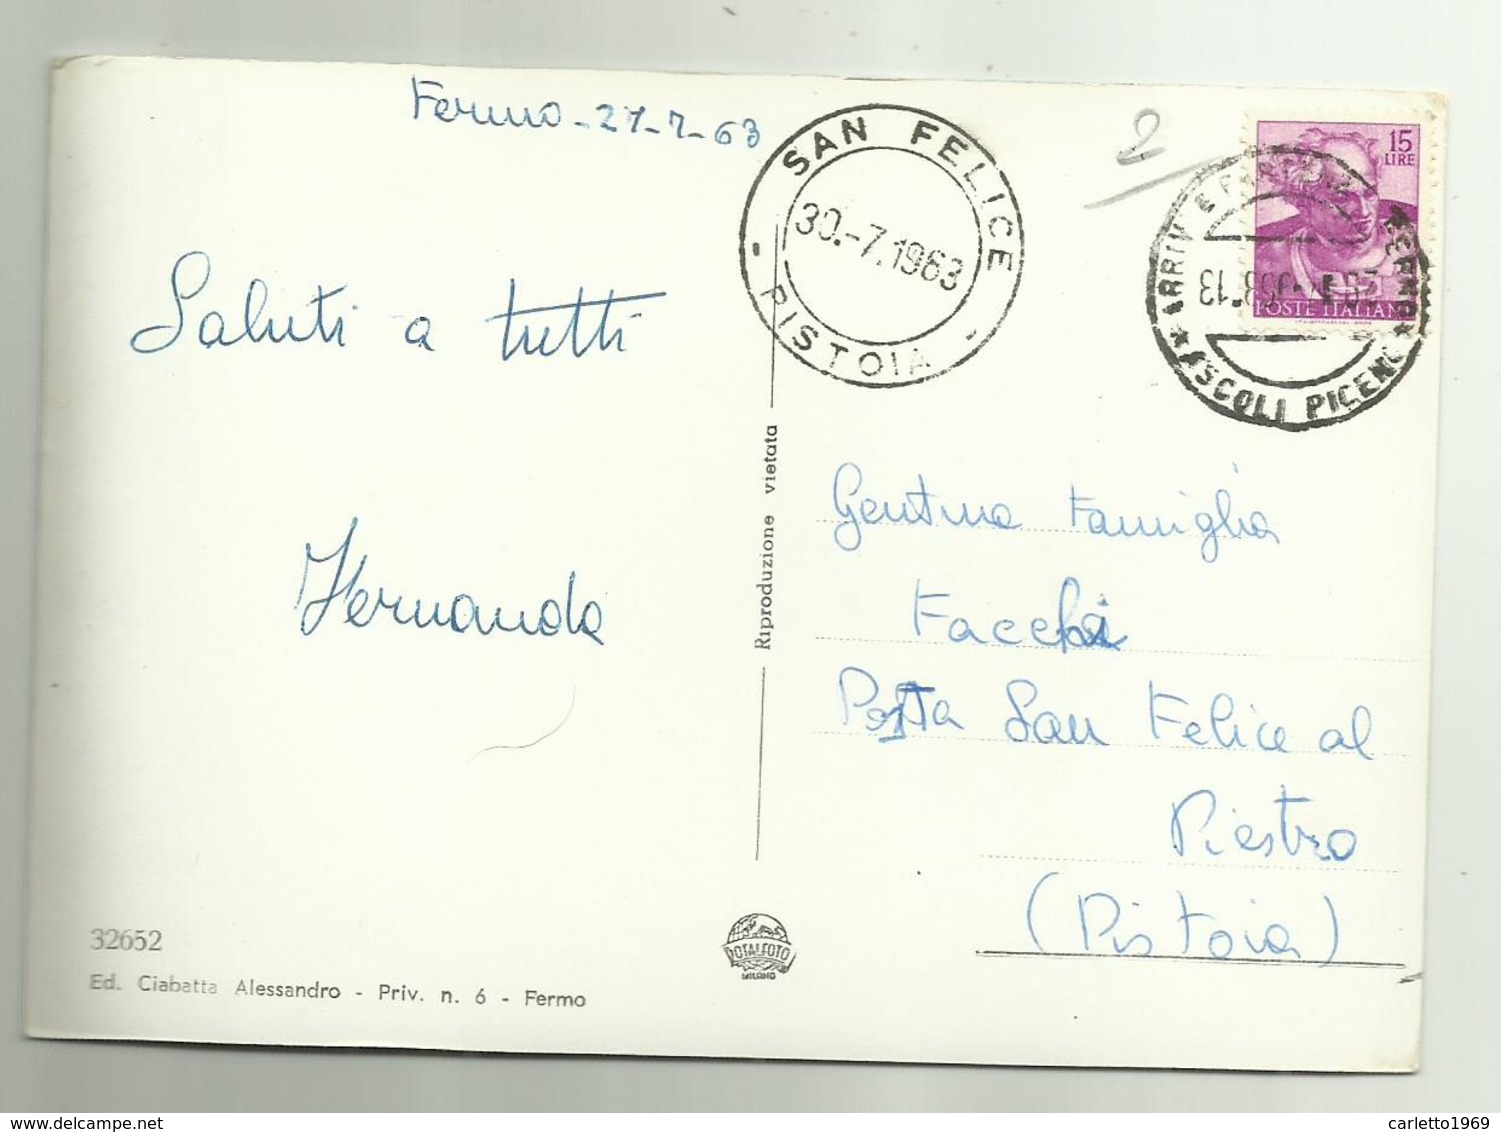 Fermo - 27-7-63
Saluti a tutti
Hernanda
32652
Ed. Ciabatta Alessandro - Priv. n. 6 - Fermo
Riproduzione vietata
ROTALFOTO
MILANO
SAN FELICE
30.-7.1963
- PISTOIA -
2
15
LIRE
POSTE ITALIANE
ARRIVI E PARTENZE FERMO
13
* ASCOLI PICENO *
Gentma Famiglia
Facchi
Posta San Felice al
Piestro
(Pistoia)
carletto1969
delcampe.net